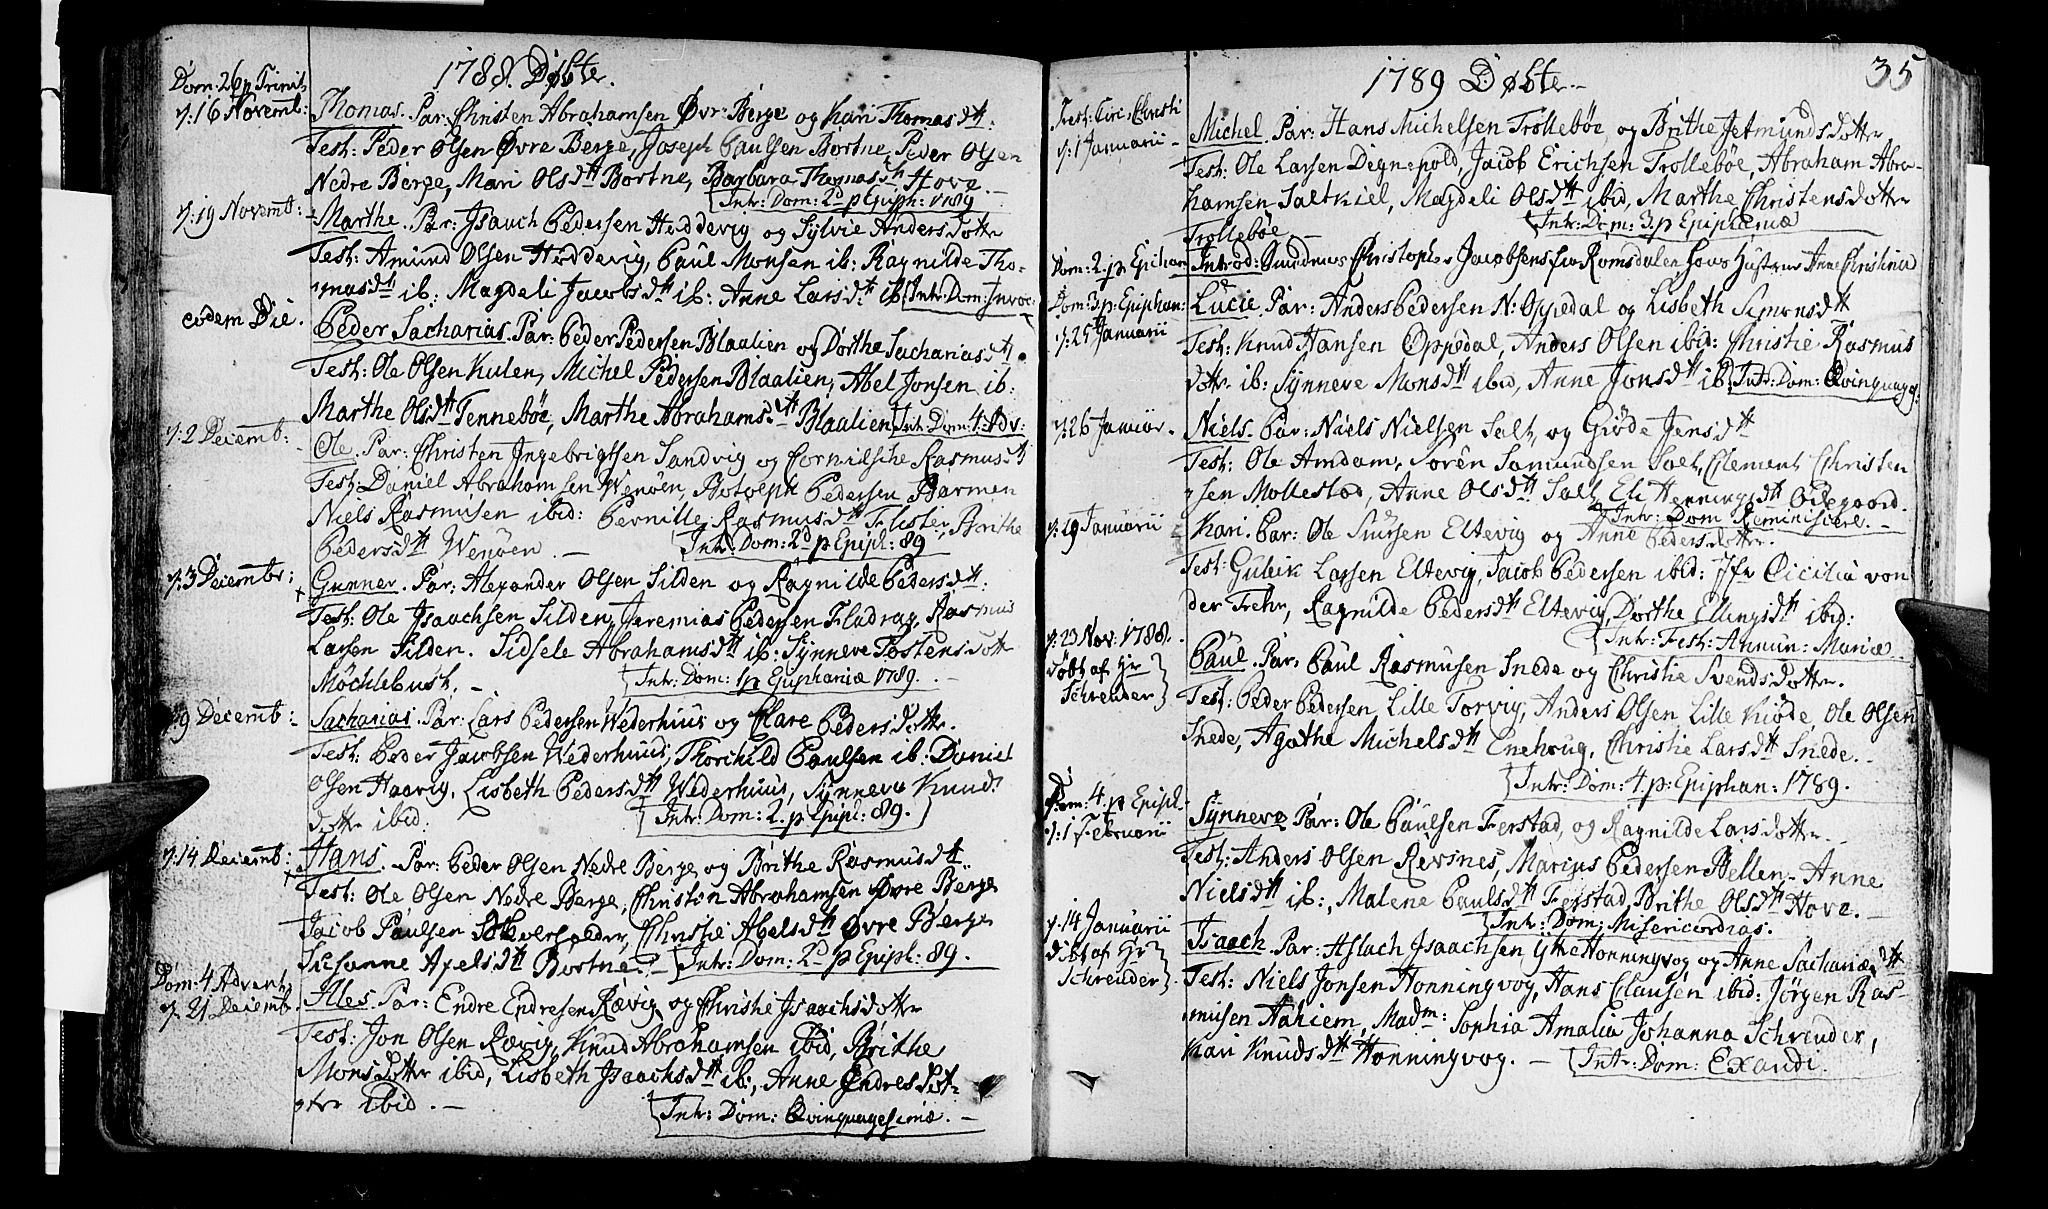 1788. Døbte.
Dom: 26 p Trinit.
d: 16 Novemb: Thomas. Par: Christen Abrahamsen Øvr: Berge og Kari Thomasdtt:
Test: Peder Olsen Øvre Berge, Joseph Paulsen Bortne, Peder Olsen
Nedre Berge, Mari Olsdtt Bortne, Barbara Thomasdtt Hove. -
Intr: Dom: 2d p Epiph: 1789
d: 19 Novemb: Marthe. Par: Isaach Pedersen Heddevig og Sylvie Andersdotter
Test: Amund Olsen Heddevig, Paul Monsen ib: Ragnilde Tho-
masdtt ib: Magdeli Jacobsdtt ib: Anne Larsdtt ib Intr: Dom: Invoc:
eodem Die. Peder Sacharias. Par: Peder Pedersen Blaalien og Dorthe Sachariasdtt.
Test: Ole Olsen Kulen, Michel Pedersen Blaalien, Abel Jonsen ib:
Marthe Olsdtt Tenneböe, Marthe Abrahamsdtt Blaalien Intr: Dom: 4: Adv:
d: 2 Decemb: Ole. Par: Christen Ingebrigtsen Sandvig og Cornelsche Rasmusdtt
Test: Daniel Abrahamsen Wenöen, Botolph Pedersen Barmen
Niels Rasmusen ibid: Pernille Rasmusdtt Flister, Brithe
Pedersdtt Wenöen. - Intr: Dom: 2d p Epiph: 89
d: 3 Decembr: Gunner. Par: Alexander Olsen Silden og Ragnilde Pedersdtt:
Test: Ole Isaachsen Silden, Jeremias Pedersen Fladrag, Rasmus
Larsen Silden. Sidsele Abrahamsdtt ib: Synneve Tostensdotter
Möchlebust. - Intr: Dom: 1 p Epiphaniæ 1789. -
d: 9 Decemb: Sacharias. Par: Lars Pedersen Wederhuus og Clare Pedersdotter.
Test: Peder Jacobsen Wederhuus, Thorchild Paulsen ib: Daniel
Olsen Haavig, Lisbeth Pedersdtt Wederhuus, Synneva Knuds
dotter ibid: Intr: Dom: 2. p Epiph: 89.
d: 14 Decemb: Hans. Par: Peder Olsen Nedre Berge og Brithe Rasmusdtt.
Test: Ole Olsen Nedre Berge, Christen Abrahamsen Øvre Berge
Jacob Paulsen, Christie Abelsdtt Øvre Berge
Susanne Axelsdtt Bortne. - Intr: Dom: 2d p Epiph: 89.
Dom: 4 Advent,
d. 21 Decemb. Illes. Par: Endre Endresen Rævig og Christie Isaachsdotter
Test: Jon Olsen Rævig, Knud Abrahamsen ibid, Brithe
Monsdotter ibid, Lisbeth Isaachsdtt ib:, Anne Endresdot-
ter ibid. - Intr: Dom: Qvinquagesimæ. -
1789 Døbte. -
35
Fest: Circ: Christi
d: 1 Januarii - Michel. Par: Hans Michelsen Trolleböe og Brithe Jetmundsdotter
Test: Ole Larsen Degnepold, Jacob Erichsen Trolleböe, Abraham Abra-
hamsen Saltkiel, Magdeli Olsdtt ibid, Marthe Christensdotter
Trolleböe - Intr: Dom: 3. p Epiphaniæ
Dom: 2. p Epiphan Introd: Christopher Jacobsens fra Romsdalen hans Hustrue Anne Christina
Dom: 3 p: Epiphan:
d: 25 Januarii Lucie. Par: Anders Pedersen N: Oppedal og Lisbeth Simonsdtt
Test: Knud Hansen Oppedal, Anders Olsen ibid: Christie Rasmus
dotter ib: Synneve Monsdtt ibid, Anne Jonsdtt ib. Intr: Dom: Qvinquag:
d: 26 Januar. Niels. Par: Niels Nielsen Salt, og Giöde Jensdtt
Test: Ole Amdam, Sören Samundsen Salt, Clement Christen
sen Mollestad, Anne Olsdtt Salt, Eli Henningsdtt Ödegaard.
Intr: Dom Reminiscere. -
d: 19 Januarii Kari. Par: Ole Siursen Eltevig og Anne Pedersdotter.
Test: Gulick Larsen Eltevig, Jacob Pedersen ibid: Jfr Cicilia von
der Fehr, Ragnilde Pedersdtt Eltevig, Dorthe Ellingsdtt ibid:
Intr: Fest: Annun: Mariæ
d: 23 Nov: 1788.
döbt af Hr
Schreuder
Paul. Par: Paul Rasmusen Snede og Christie Svendsdotter.
Test: Peder Pedersen Lille Torvig, Anders Olsen Lille Kiöde, Ole Olsen
Snede, Agathe Michelsdtt Enehoug, Christie Larsdtt Snede. -
Intr: Dom: 4. p: Epiphan: 1789.
Dom: 4. p Epiph:
d: 1 Februarii Synneve Par: Ole Paulsen Ferstad, og Ragnilde Larsdotter.
Test: Anders Olsen Revsnes, Marius Pedersen Hellen. Anne
Nielsdtt ib:, Malene Paulsdtt Ferstad, Brithe Olsdtt Hove. -
Intr: Dom: Misericordias.
d. 14 Januarii
döbt af Hr
Schreuder
Isaach. Par: Aslach Isaachsen Ytre Honningvog og Anne Sachariædtt
Test: Niels Jonsen Honningvog, Hans Clausen ibid: Jörgen Ras-
musen Aahiem, Madm: Sophia Amalia Johanna Schreuder,
Kari Knudsdtt Honningvog. - Intr: Dom: Exaudi.